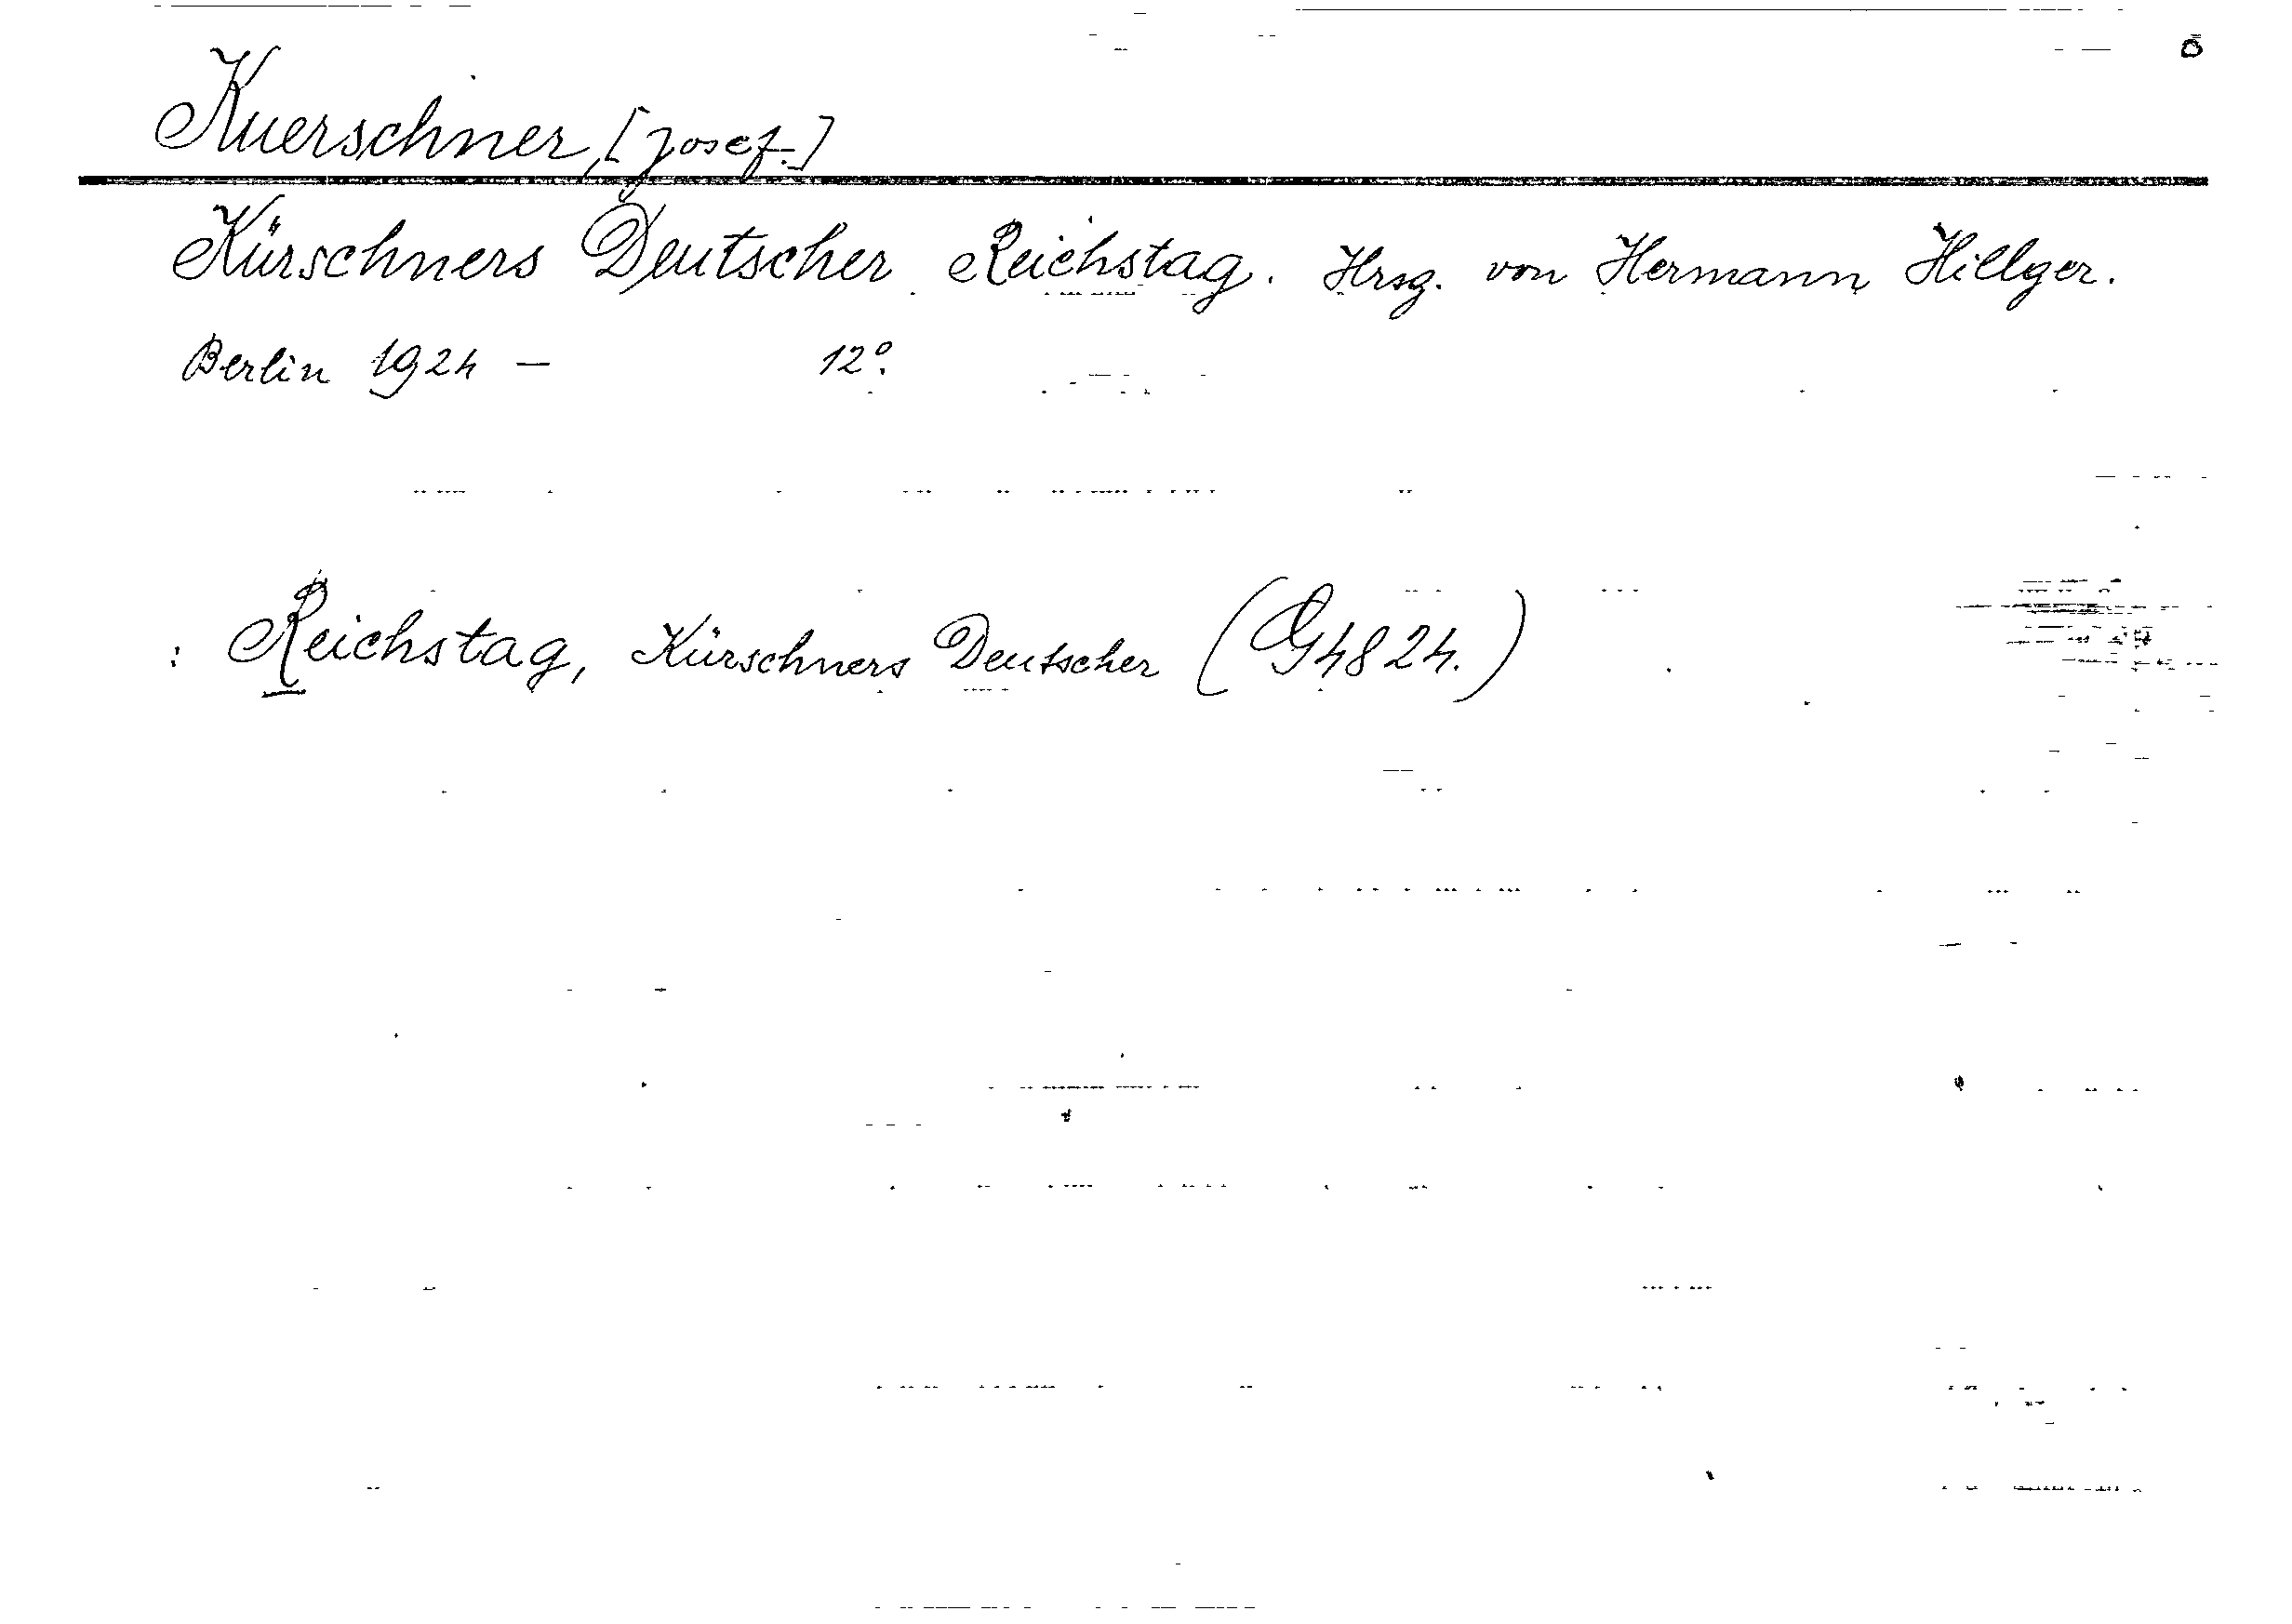 Kuerschner, [Josef.]
Kürschners Deutscher Reichstag. Hrsg. von Hermann Hillger.
Berlin 1924 — 12°.
: Reichstag, Kürschners Deutscher (G4824.)